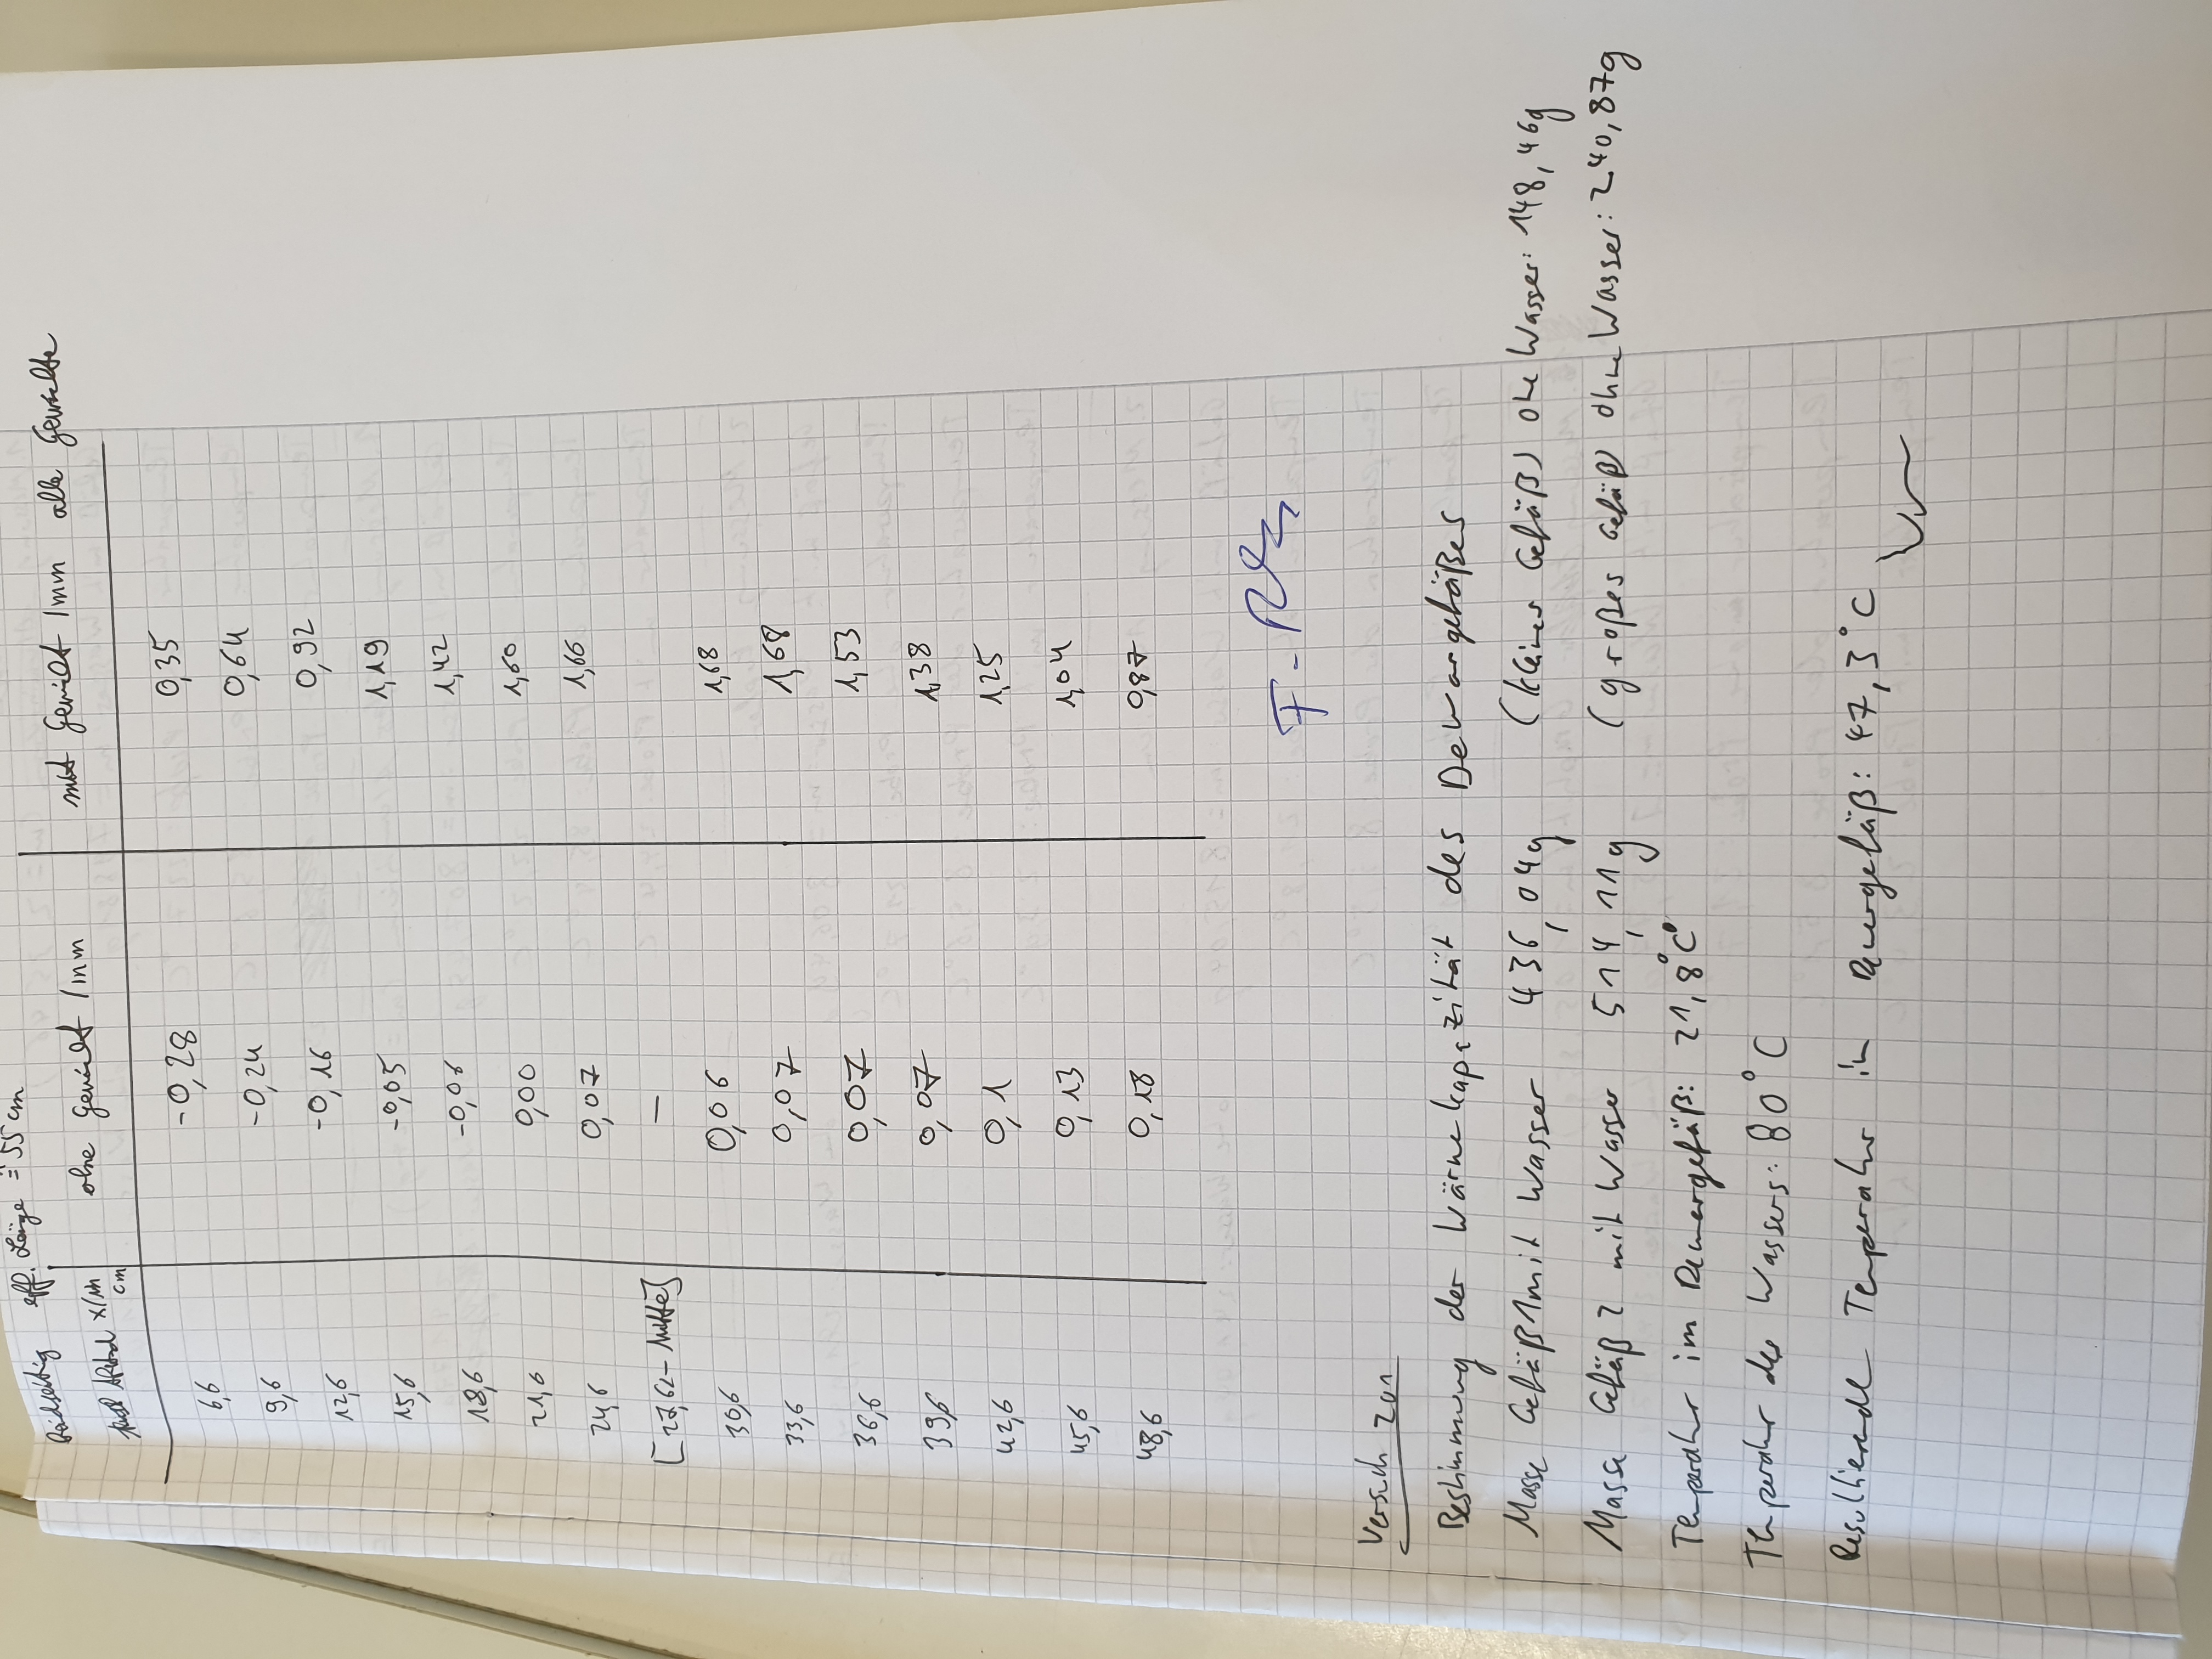 Beidseitig eff. Länge = 55 cm
x/in cm ohne Gewicht /mm mit Gewicht /mm alle Gewichte
6,6 -0,28 0,35
9,6 -0,24 0,64
12,6 -0,16 0,92
15,6 -0,05 1,19
18,6 -0,01 1,42
21,6 0,00 1,60
24,6 0,07 1,66
[27,6 - Mitte] -
30,6 0,06 1,68
33,6 0,07 1,68
36,6 0,07 1,53
39,6 0,07 1,38
42,6 0,1 1,25
45,6 0,13 1,04
48,6 0,18 0,87
Versuch 201
Bestimmung der Wärmekapazität des Dewargefäßes
Masse Gefäß 1 mit Wasser 436,04g (kleines Gefäß) ohne Wasser: 148,46g
Masse Gefäß 2 mit Wasser 514,11g (großes Gefäß) ohne Wasser: 240,87g
Temperatur im Dewargefäß: 21,8°C
Temperatur des Wassers: 80°C
Resultierende Temperatur im Dewargefäß: 47,3°C